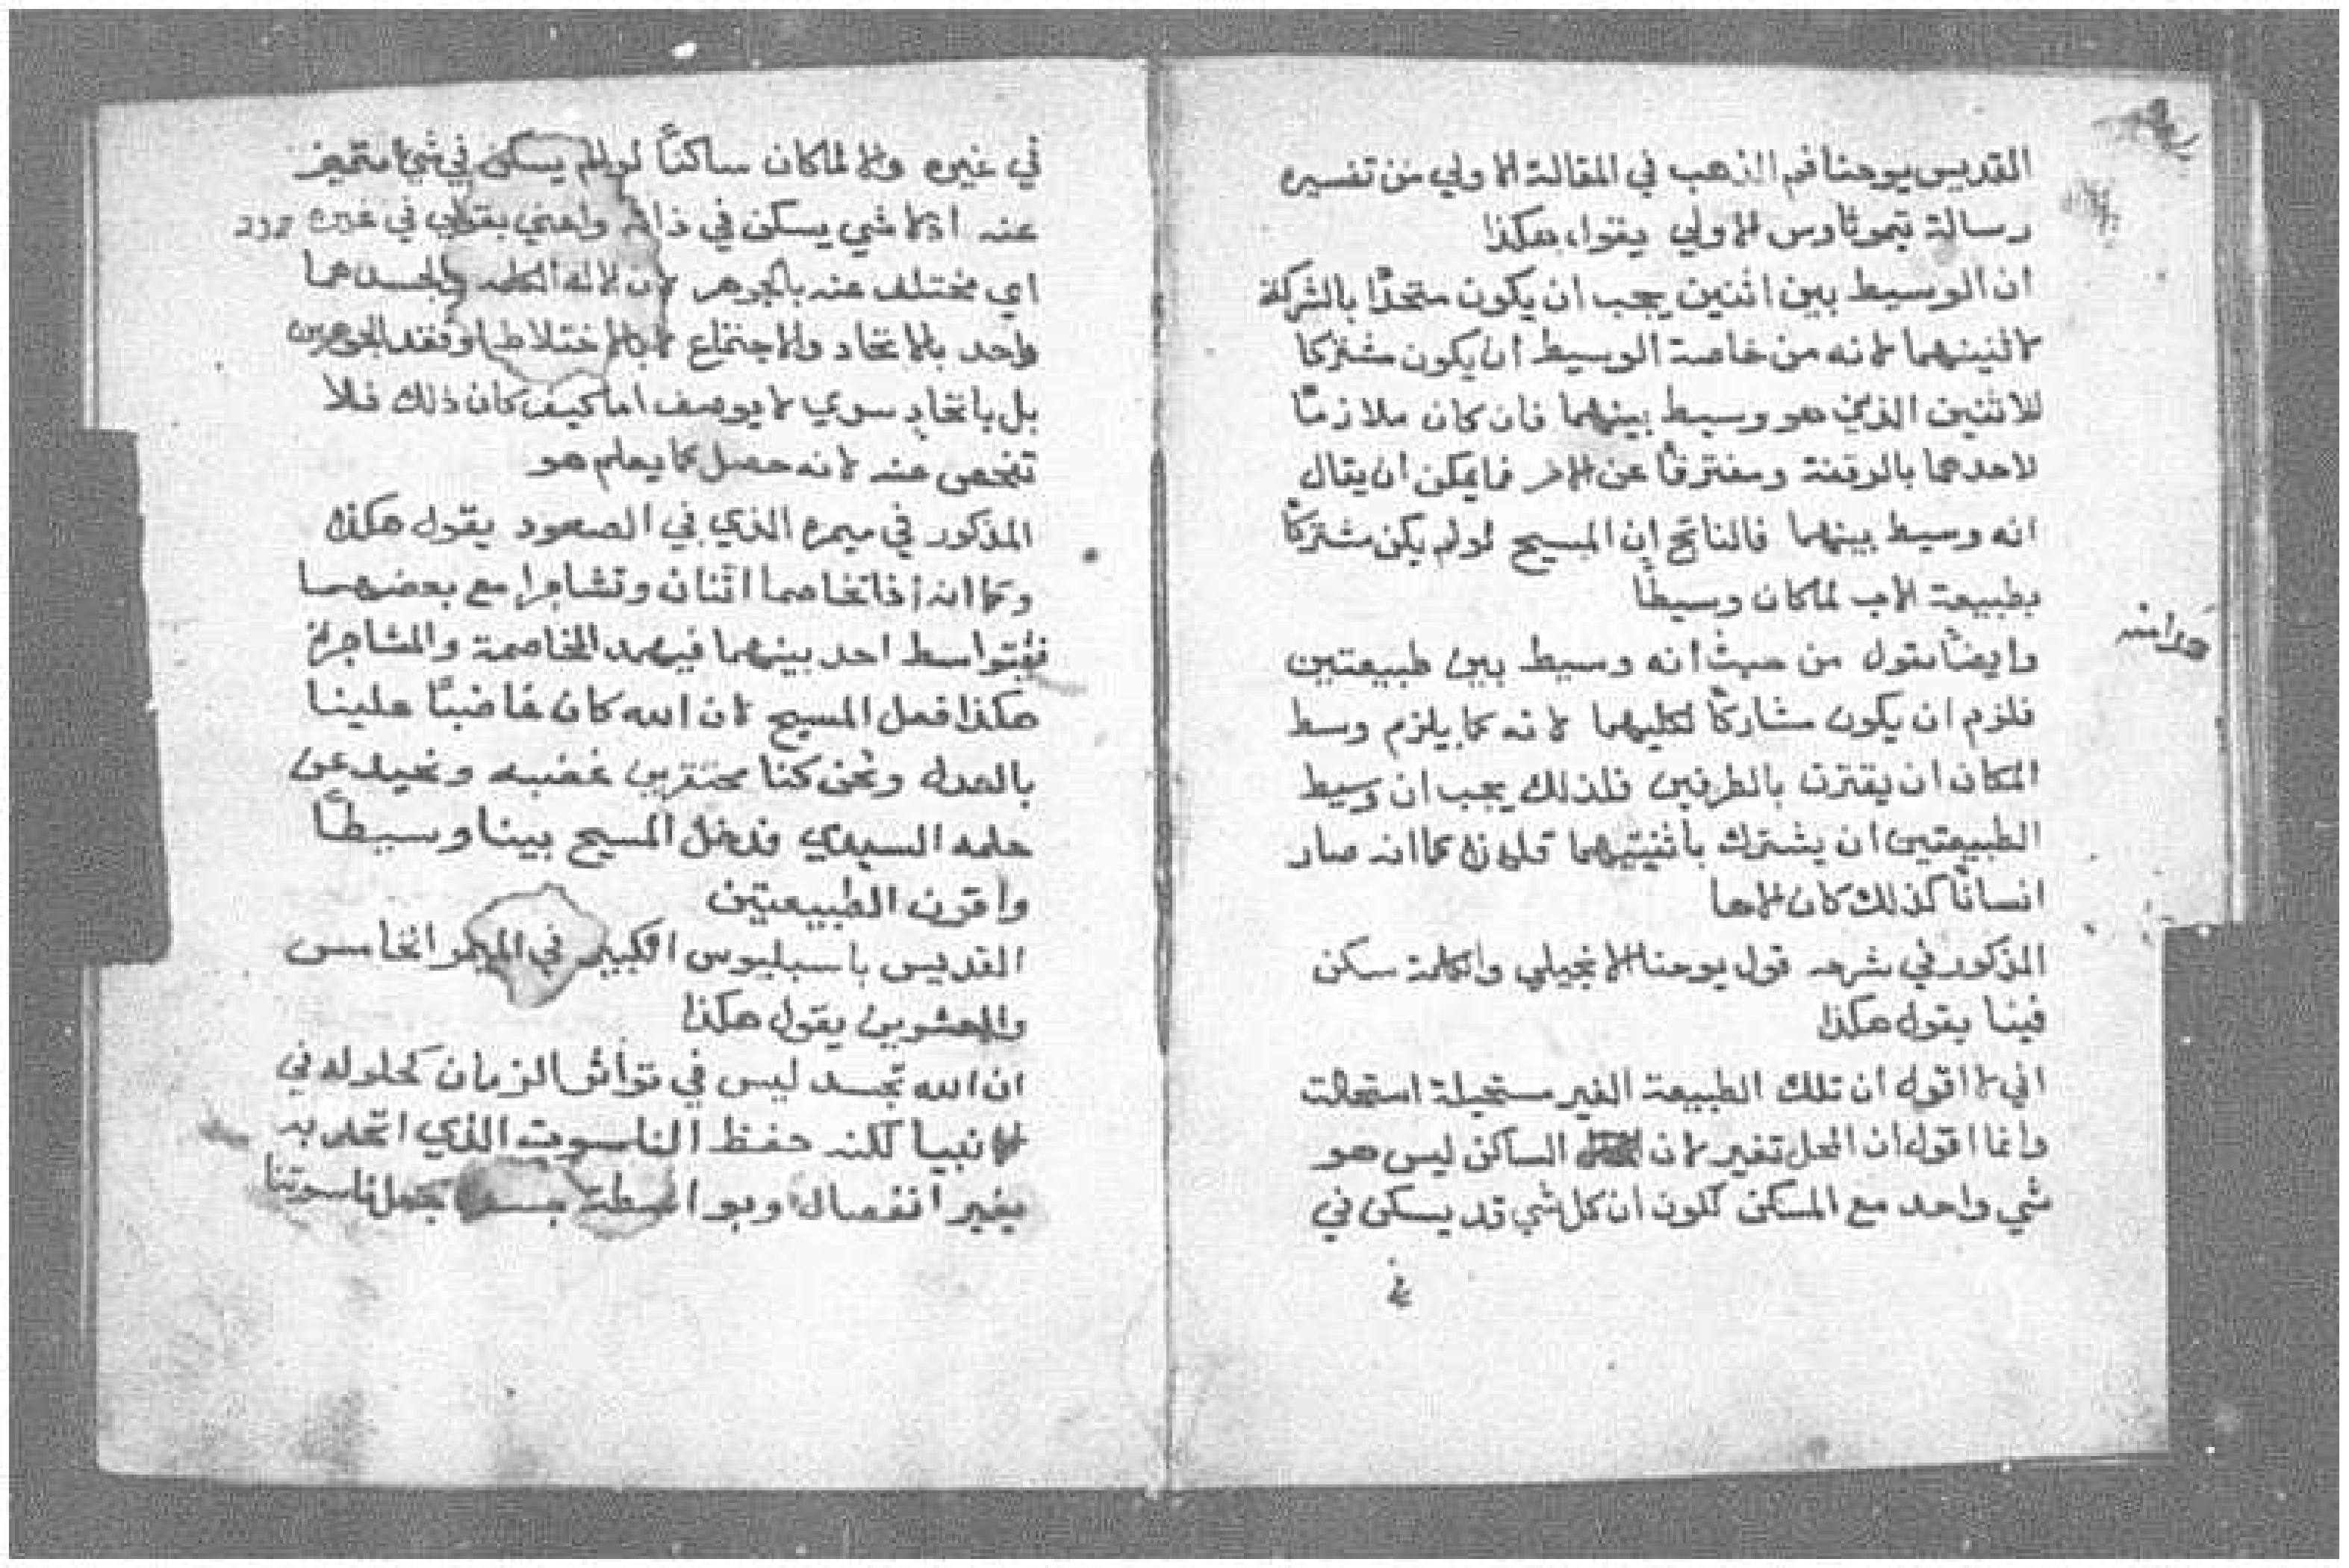 القديس يوحنا فم الذهب في المقالة الاولي من تفسيره
رسالة تيموثاوس الاولي يقول هكذا
ان الوسيط بين اثنين يجب ان يكون متحدًا بالشركة
لاثنينهما لانه من خاصة الوسيط ان يكون مشتركا
للاثنين الذين هو وسيط بينهما فان كان ملازمًا
لاحدهما بالرفقة ومفترقًا عن الاخر فما يمكن ان يقال
انه وسيط بينهما فالناتج ان المسيح لو لم يكن مشتركًا
بطبيعة الاب لما كان وسيطًا
وايضًا نقول من حيث انه وسيط بين طبيعتين
فلزم ان يكون مشاركًا لكليهما لانه كما يلزم وسط
المكان ان يقترن بالطرفين فلذلك يجب ان وسيط
الطبيعتين ان يشترك باثنيتيهما كما انه صار
انسانًا كذلك كان الاها
المذكور في شرحه قول يوحنا الانجيلي والكلمة سكن
فينا يقول هكذا
اني لا اقول ان تلك الطبيعة الغير مستحيلة استحالت
وانما اقول ان المحل تغير لان الساكن ليس هو
شي واحد مع المسكن لكون ان كل شي قد يسكن في
في غيره والا لما كان ساكنًا لو لم يسكن في شي متميز
عنه اذ لا شي يسكن في ذاته واعني بقولي في غيره
اي مختلف عنه بالجوهر لان الاله الكلمه والجسد هما
واحد بالاتحاد والاجتماع لا بالاختلاط وفقد الجوهرين
بل باتحادٍ سري لا يوصف اما كيف كان ذلك فلا
تفحص عنه لانه حصل كما يعلم هو
المذكور في ميمره الذي في الصعود يقول هكذا
وكما انه اذا تخاصما اثنان وتشاجرا مع بعضهما
فيتواسط احد بينهما فيهمد المخاصمة والمشاجرة
هكذا فعل المسيح لان الله كان غاضبًا علينا
بالعدل ونحن كنا محتقرين غضبه ونحيد عن
حلمه السيدي فدخل المسيح بينا وسيطًا
واقرن الطبيعتين
القديس باسيليوس الكبير في الميمر الخامس
والعشرين يقول هكذا
ان الله تجسد ليس في تواتر الزمان كحلوله في
الانبيا لكنه حفظ الناسوت الذي اتحد به
بغير انفصال وبواسطة جسده جعل ناسوتنا